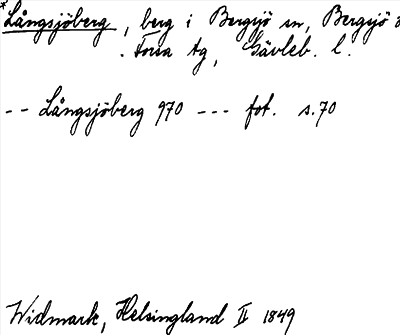 *Långsjöberg, berg i Bergsjö sn, Bergsjö o
. Forsa tg, Gävleb. l.
-- Långsjöberg 970 --- fot. s.70
Widmark, Helsingland II 1849